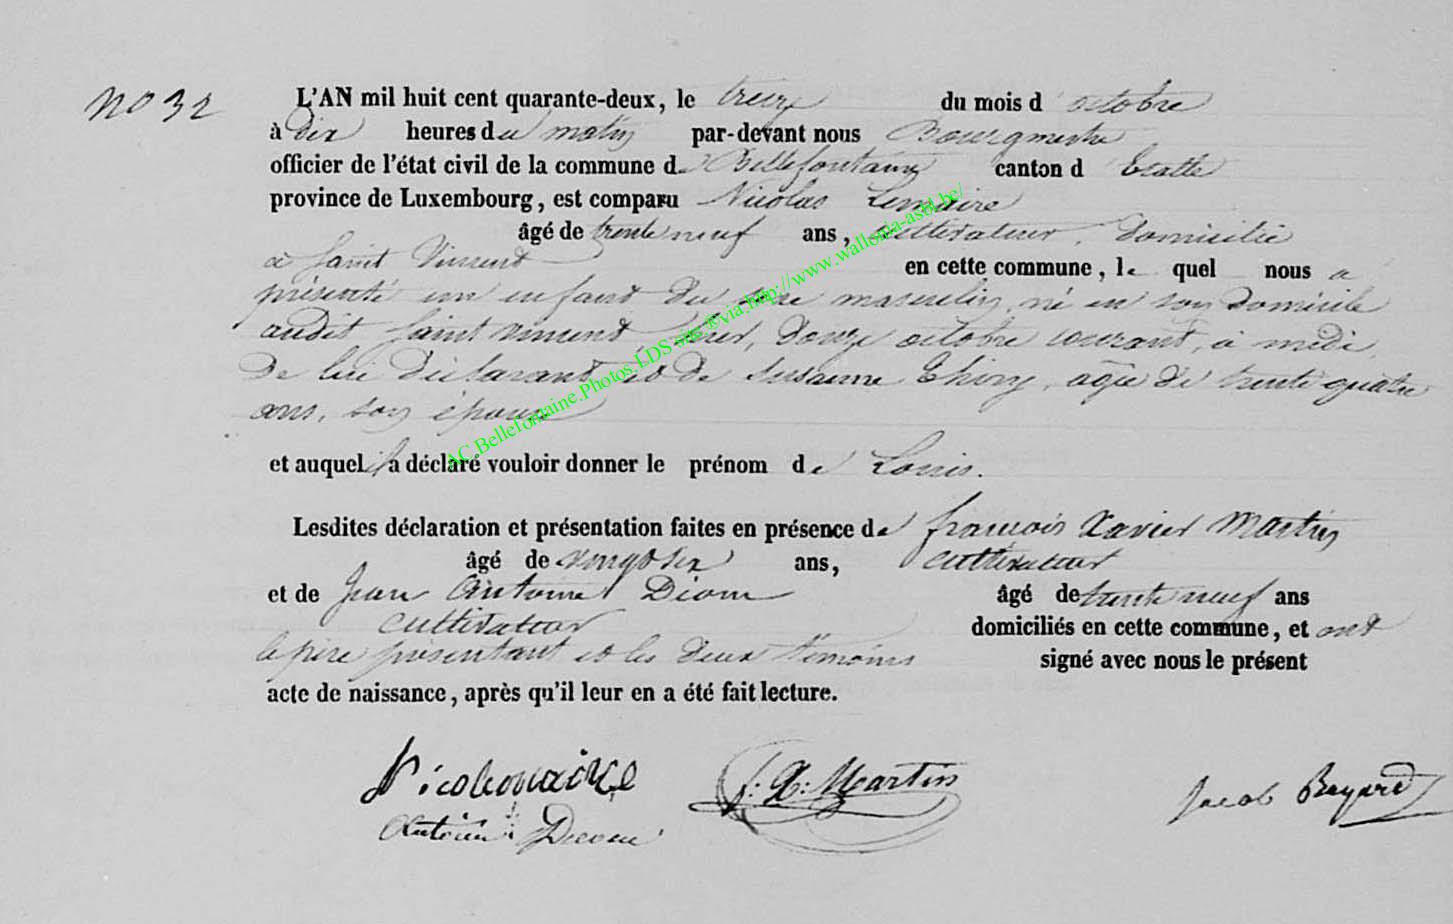 No 32
L'AN mil huit cent quarante-deux, le treize du mois d'octobre
à dix heures du matin par-devant nous Bourgmestre
officier de l'état civil de la commune de Bellefontaine canton d'Etalle
province de Luxembourg, est comparu Nicolas Lemaire
âgé de trente neuf ans, cultivateur, domicilié
à Saint Vincent en cette commune, le quel nous a
présenté un enfant du sexe masculin, né en son domicile
audit Saint vincent, hier, douze octobre courant, à midi
de lui déclarant et de Susanne Thiry, agée de trente quatre
ans, son épouse
et auquel il a déclaré vouloir donner le prénom de Louis.
Lesdites déclaration et présentation faites en présence de françois Xavier Martin
âgé de vingt six ans, cultivateur
et de Jean Antoine Dion âgé de trente neuf ans
cultivateur domiciliés en cette commune, et ont
le père présentant et les deux témoins signé avec nous le présent
acte de naissance, après qu'il leur en a été fait lecture.
f: X: Martin Jacob Bayard
Antoine
AC.Bellefontaine.Photos.LDS-site.©via.http://www.wallonia-asbl.be/